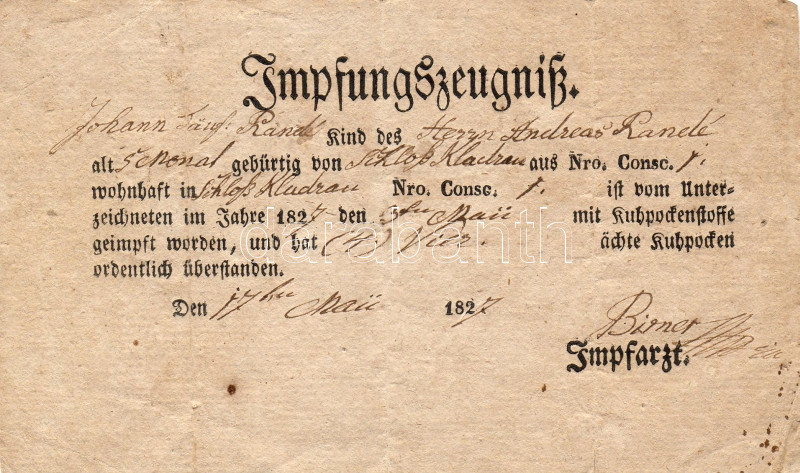 Impfungszeugniß.
Johann Randé Kind des Herrn Andreas Randé
alt 5 Monat gebürtig von Schloß Kladrau aus Nro. Consc. 1.
wohnhaft in Schloß Kladrau Nro. Consc. 1. ist vom Unter-
zeichneten im Jahre 1827 den ten Maii mit Kuhpockenstoffe
geimpft worden, und hat (4) Vier. ächte Kuhpocken
ordentlich überstanden.
Den 17ten Maii 1827
Birner
Impfarzt.
darabanth